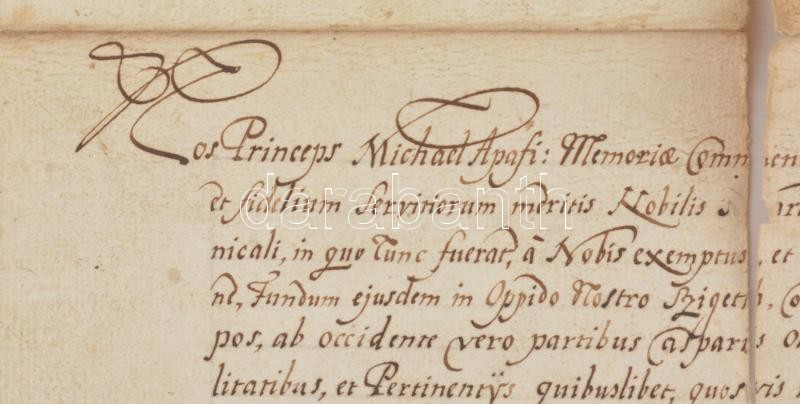 Nos Princeps Michael Apafi: Memoriæ Com men
et fidelium servitiorum meritis Nobilis
nicali, in quo tunc fuerat, à Nobis exemptus, et
ne, Fundum ejusdem in Oppido Nostro Szigeth,
pos, ab occidente vero partibus
litatibus, et Pertinentÿs quibuslibet, quos vis
darabanth